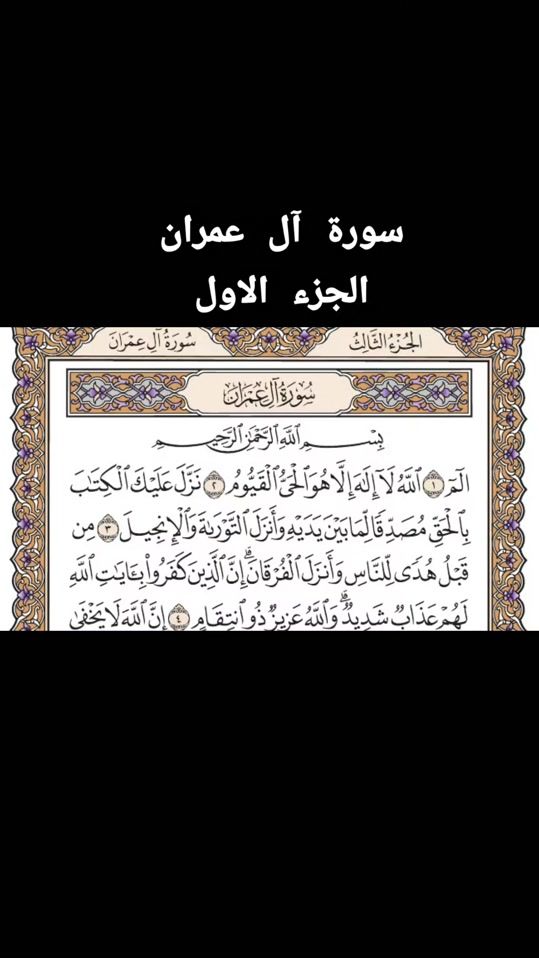 سورة آل عمران
الجزء الاول
الجُزْءُ الثَّالِثُ سُورَةُ آلِ عِمْرَانَ
سُورَةُ آلِ عِمْرَانَ
بِسْمِ ٱللَّهِ ٱلرَّحْمَٰنِ ٱلرَّحِيمِ
الٓمٓ ١ ٱللَّهُ لَآ إِلَٰهَ إِلَّا هُوَ ٱلْحَىُّ ٱلْقَيُّومُ ٢ نَزَّلَ عَلَيْكَ ٱلْكِتَٰبَ
بِٱلْحَقِّ مُصَدِّقًا لِّمَا بَيْنَ يَدَيْهِ وَأَنزَلَ ٱلتَّوْرَىٰةَ وَٱلْإِنجِيلَ ٣ مِن
قَبْلُ هُدًى لِّلنَّاسِ وَأَنزَلَ ٱلْفُرْقَانَ ۗ إِنَّ ٱلَّذِينَ كَفَرُوا۟ بِـَٔايَٰتِ ٱللَّهِ
لَهُمْ عَذَابٌ شَدِيدٌ ۗ وَٱللَّهُ عَزِيزٌ ذُو ٱنتِقَامٍ ٤ إِنَّ ٱللَّهَ لَا يَخْفَىٰ